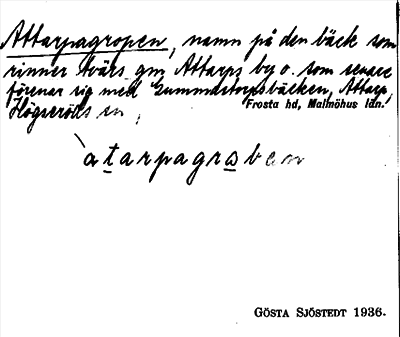 Attarpagropen, namn på den bäck som
rinner tvärs gm Attarps by o. som senare
förenar sig med Gummastorpsbäcken, Attarp,
Högseröds sn, Frosta hd, Malmöhus län.
atarpagraben
GÖSTA SJÖSTEDT 1936.